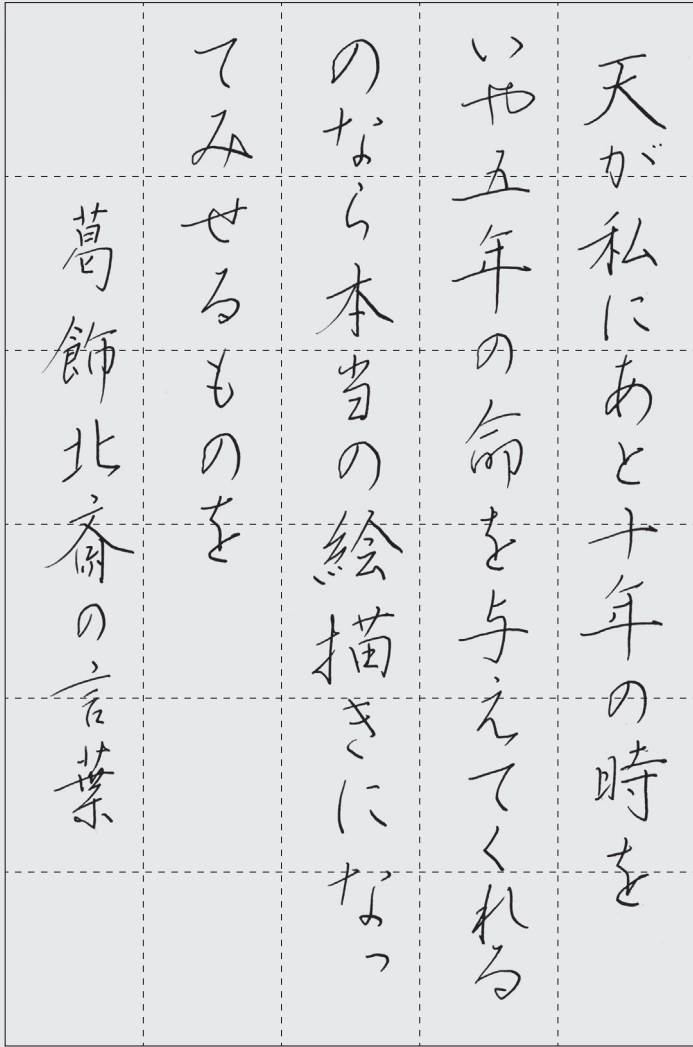 天が私にあと十年の時を
いや五年の命を与えてくれる
のなら本当の絵描きになっ
てみせるものを
葛飾北斎の言葉